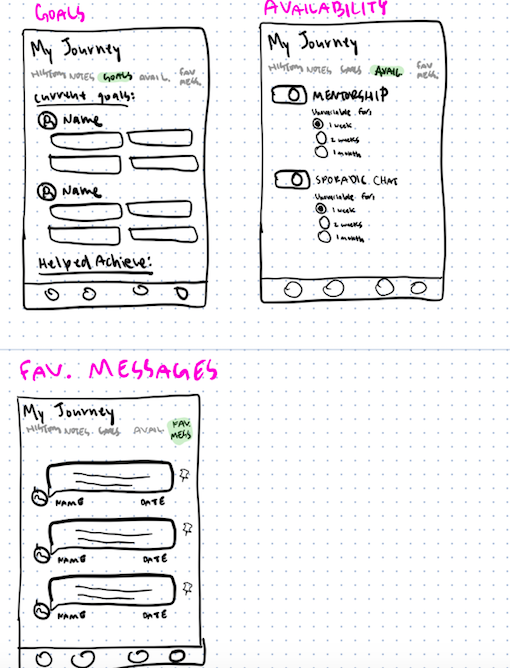 GOALS
My Journey
HISTORY NOTES GOALS AVAIL. FAV MESS.
Current goals:
Name
Name
Helped Achieve:
AVAILABILITY
My Journey
HISTORY NOTES GOALS AVAIL. FAV MESS.
MENTORSHIP
Unavailable for:
1 week
2 weeks
1 month
SPORADIC CHAT
Unavailable for:
1 week
2 weeks
1 month
FAV. MESSAGES
My Journey
HISTORY NOTES GOALS AVAIL. FAV. MESS
NAME DATE
NAME DATE
NAME DATE